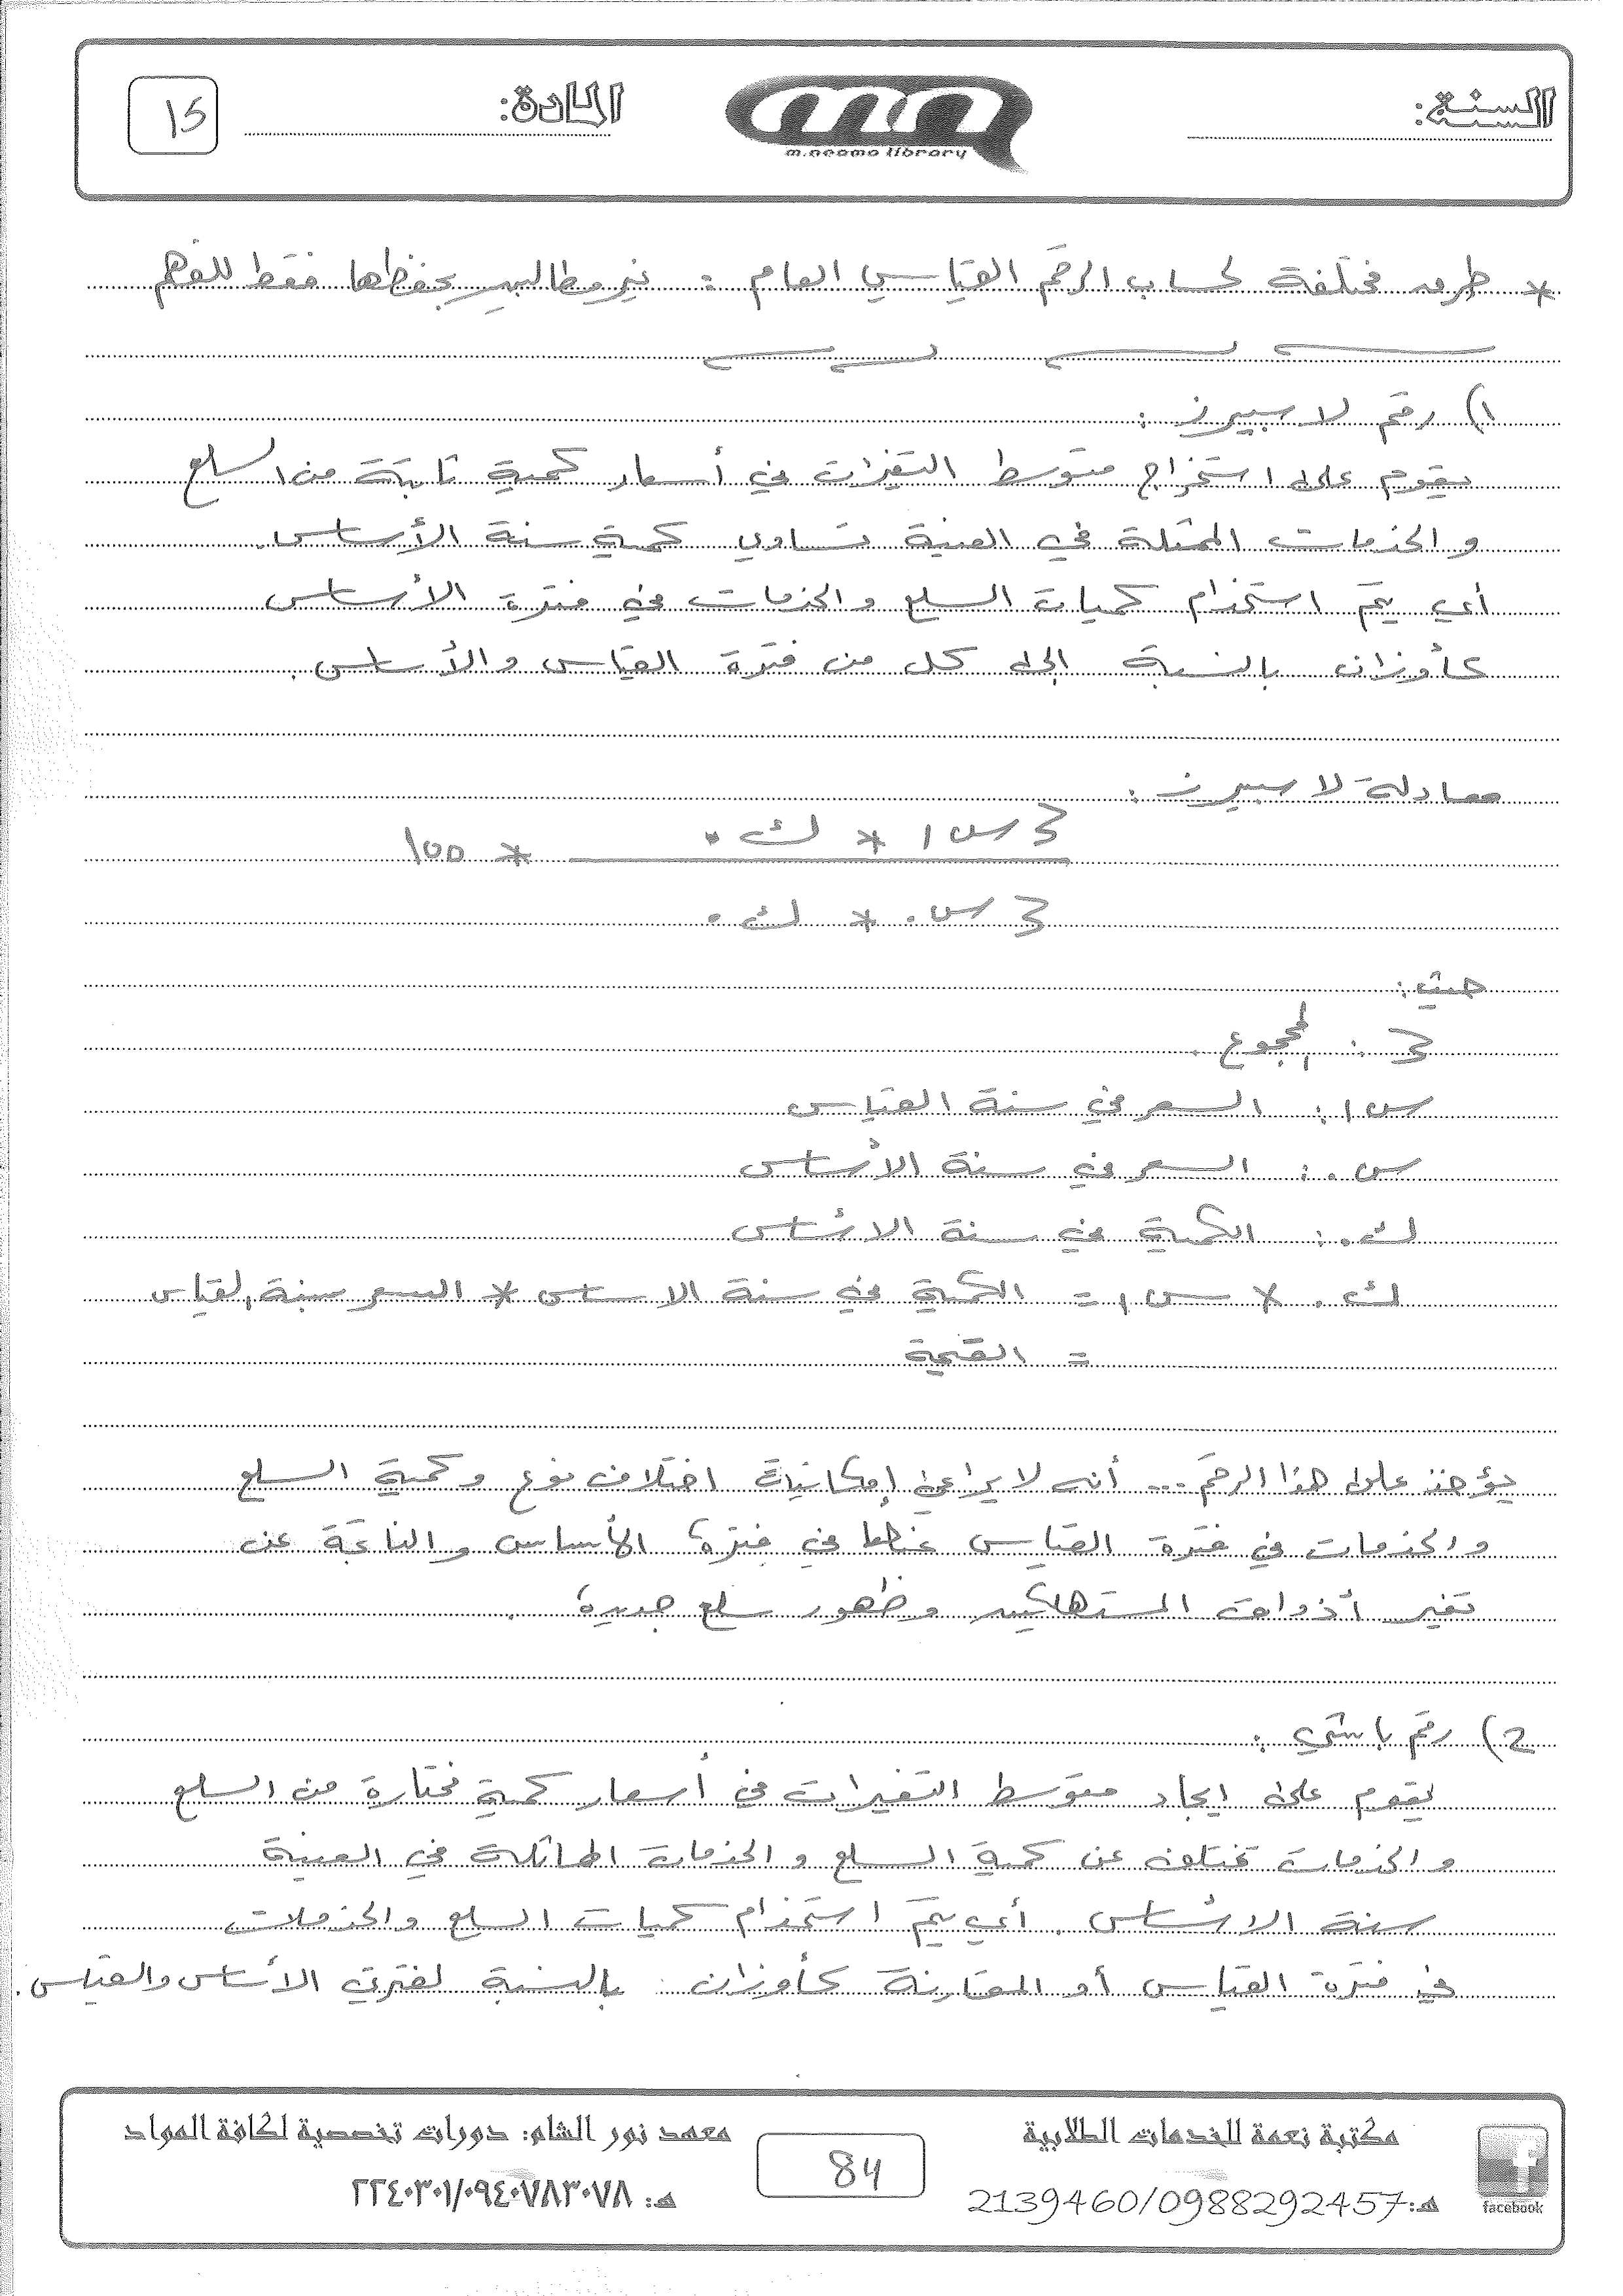 السنة:
m.neama library
المادة:
15
* طرق مختلفة لحساب الرقم القياسي العام : غير مطالبين بحفظها فقط للفهم
1) رقم لاسبيرز :
يقوم على استخراج متوسط التغيرات في أسعار كمية ثابتة من السلع
والخدمات الممثلة في العينة تساوي كمية سنة الأساس.
أي يتم استخدام كميات السلع والخدمات في فترة الأساس
كأوزان بالنسبة إلى كل من فترة القياس والأساس.
معادلة لاسبيرز :
مج س1 * ك.
* 100
مج س. * ك.
حيث:
مج : المجموع.
س1: السعر في سنة القياس
س.: السعر في سنة الأساس
ك.: الكمية في سنة الأساس
ك. * س1 = الكمية في سنة الاساس * السعر سنة القياس
= القيمة
يؤخذ على هذا الرقم ... أنه لا يراعي إمكانية اختلاف نوع وكمية السلع
والخدمات في فترة القياس عنها في فترة الأساس والناتجة عن
تغير أذواق المستهلكين وظهور سلع جديدة.
2) رقم باشي :
يقوم على ايجاد متوسط التغيرات في أسعار كمية مختارة من السلع
والخدمات تختلف عن كمية السلع والخدمات المماثلة في العينة
سنة الأساس. أي يتم استخدام كميات السلع والخدمات
في فترة القياس أو المقارنة كأوزان بالنسبة لفترتي الأساس والقياس.
facebook
مكتبة نعمة للخدمات الطلابية
هـ: 2139460/0988292457
84
معهد نور الشام: دورات تخصصية لكافة المواد
هـ: ٢٢٤٠٣٠١/٠٩٤٠٧٨٣٠٧٨